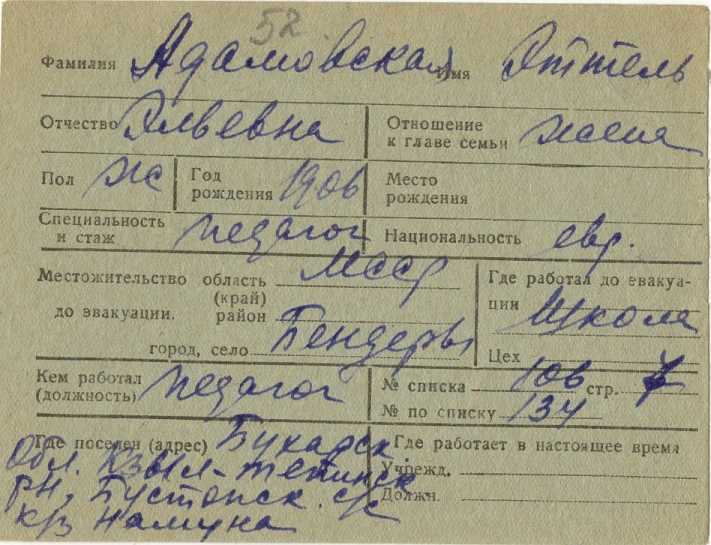 52
Фамилия Адамовская Имя Эттель
Отчество Эльевна Отношение к главе семьи жена
Пол ж Год рождения 1906 Место рождения
Специальность и стаж педагог Национальность евр.
Местожительство область (край) МССР Где работал до эвакуа-
до эвакуации. район ции Школа
город, село Бендеры Цех
Кем работал (должность) педагог № списка 106 стр.
№ по списку 134
Где поселен (адрес) Бухарск Где работает в настоящее время
Обл. Кзыл-тепинск Учрежд.
рн, Бустонск. с/с Должн.
к/з Намуна